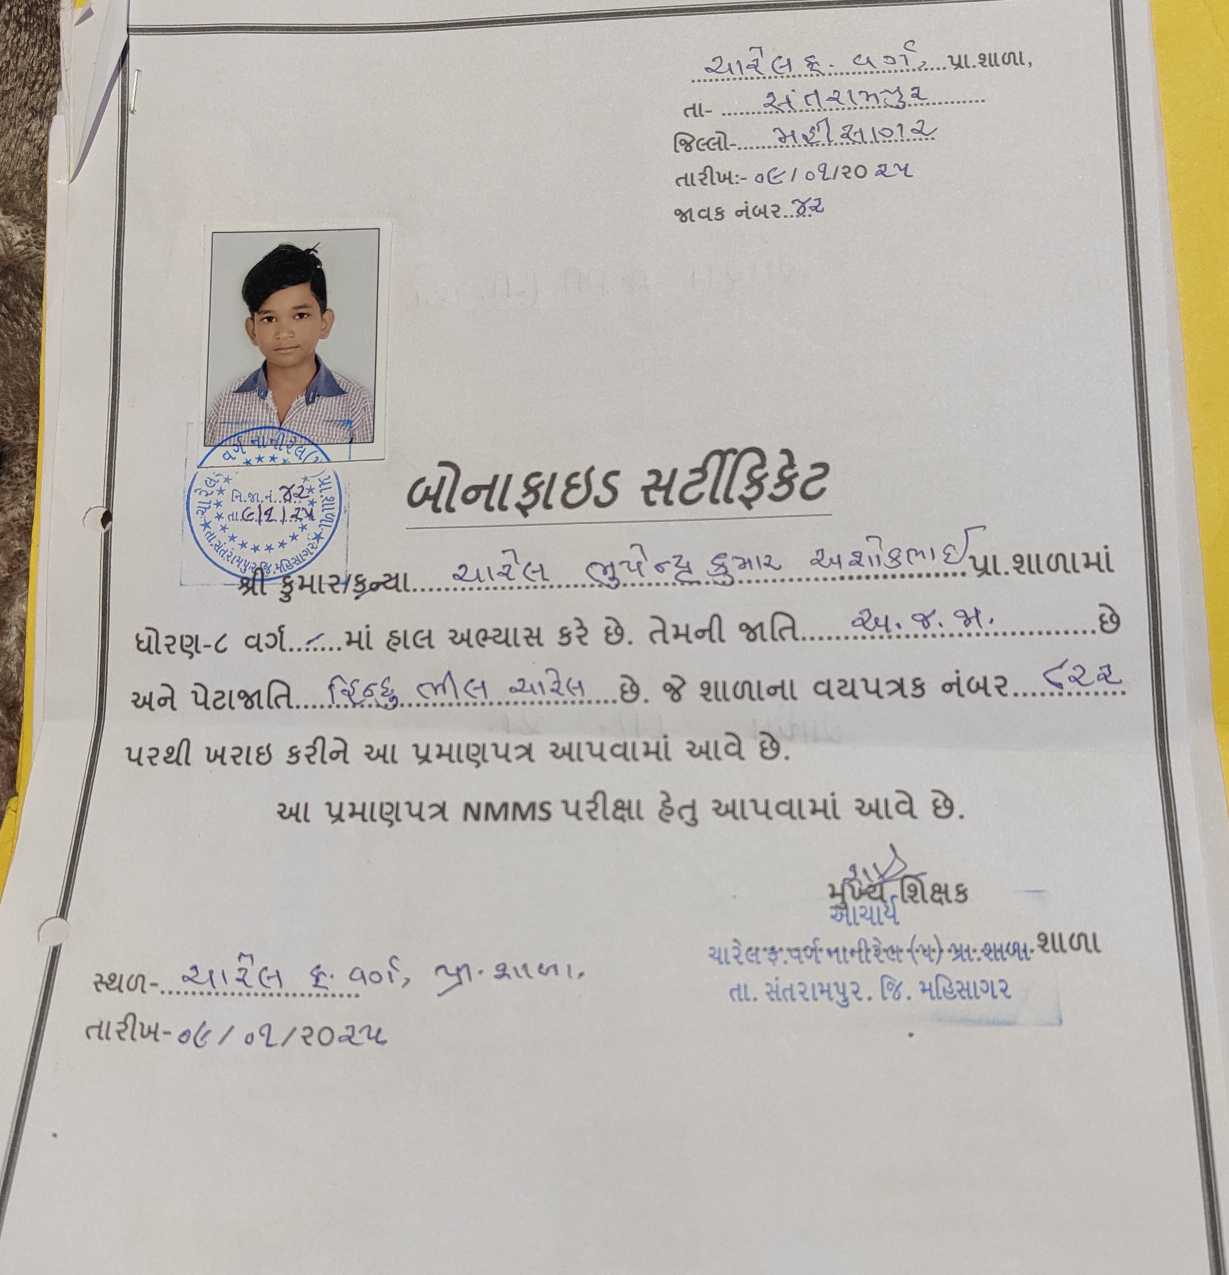 ચારેલ ફ. વર્ગ, પ્રા.શાળા,
તા- સંતરામપુર
જિલ્લો- મહીસાગર
તારીખ:- ૦૯/૦૧/૨૦૨૫
જાવક નંબર..૪૨
નિ.જા.નં. ૪૨
તા. ૯/૧/૨૫
બોનાફાઇડ સર્ટીફિકેટ
શ્રી કુમાર/કન્યા ચારેલ ભુપેન્દ્રકુમાર અશોકભાઈ પ્રા.શાળામાં
ધોરણ-૮ વર્ગ માં હાલ અભ્યાસ કરે છે. તેમની જાતિ અ.જ.જા. છે
અને પેટાજાતિ હિન્દુ ભીલ ચારેલ છે. જે શાળાના વયપત્રક નંબર ૮૨૨
પરથી ખરાઇ કરીને આ પ્રમાણપત્ર આપવામાં આવે છે.
આ પ્રમાણપત્ર NMMS પરીક્ષા હેતુ આપવામાં આવે છે.
મુખ્ય શિક્ષક
આચાર્ય
ચારેલ ફ.વર્ગ નાનીરેલ (પ) પ્રા. શાળા શાળા
તા. સંતરામપુર. જિ. મહિસાગર
સ્થળ- ચારેલ ફ. વર્ગ, પ્રા. શાળા.
તારીખ-૦૯/૦૧/૨૦૨૫